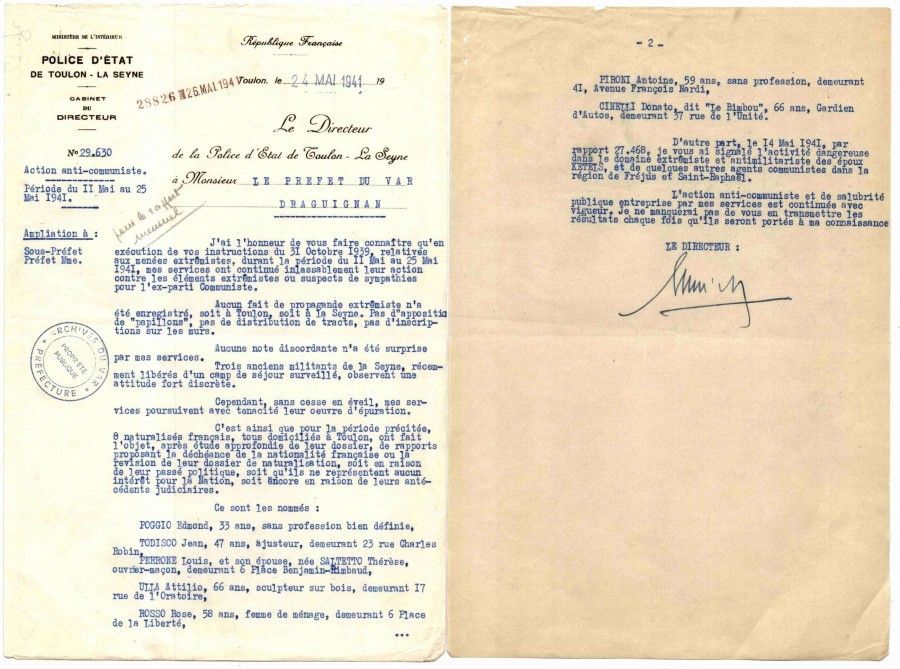 MINISTÈRE DE L'INTÉRIEUR
POLICE D'ÉTAT
DE TOULON - LA SEYNE
CABINET
DU
DIRECTEUR
N° 29.630
Action anti-communiste.
Période du II Mai au 25
Mai I941.
Ampliation à :
Sous-Préfet
Préfet Mme.
République Française
Toulon, le 24 MAI 1941 19
28826 26.MAI.1941
Le Directeur
de la Police d'Etat de Toulon - La Seyne
à Monsieur LE PREFET DU VAR
DRAGUIGNAN
pour le rapport
mensuel
J'ai l'honneur de vous faire connaître qu'en
exécution de vos instructions du 3I Octobre I939, relatives
aux menées extrêmistes, durant la période du II Mai au 25 Mai
I94I, mes services ont continué inlassablement leur action
contre les éléments extrêmistes ou suspects de sympathies
pour l'ex-parti Communiste.
Aucun fait de propagande extrêmiste n'a
été enregistré, soit à Toulon, soit à la Seyne. Pas d'appositio
de "papillons", pas de distribution de tracts, pas d'inscrip-
tions sur les murs.
Aucune note discordante n'a été surprise
par mes services.
Trois anciens militants de la Seyne, récem-
ment libérés d'un camp de séjour surveillé, observent une
attitude fort discrète.
Cependant, sans cesse en éveil, mes ser-
vices poursuivent avec tenacité leur oeuvre d'épuration.
C'est ainsi que pour la période précitée,
8 naturalisés français, tous domiciliés à Toulon, ont fait
l'objet, après étude approfondie de leur dossier, de rapports
proposant la déchéance de la nationalité française ou la
revision de leur dossier de naturalisation, soit en raison
de leur passé politique, soit qu'ils ne représentent aucun
intérêt pour la Nation, soit encore en raison de leurs anté-
cédents judiciaires.
Ce sont les nommés :
POGGIO Edmond, 33 ans, sans profession bien définie,
TODISCO Jean, 47 ans, ajusteur, demeurant 23 rue Charles
Robin,
PERRONE Louis, et son épouse, née SALTETTO Thérèse,
ouvrier-maçon, demeurant 6 Place Benjamin-Rimbaud,
ULIA Attilio, 66 ans, sculpteur sur bois, demeurant I7
rue de l'Oratoire,
ROSSO Rose, 58 ans, femme de ménage, demeurant 6 Place
de la Liberté,
...
ARCHIVES DU VAR
PROPRIÉTÉ
PUBLIQUE
PREFECTURE
- 2 -
PIRONI Antoine, 59 ans, sans profession, demeurant
4I, Avenue François Nardi,
CINELLI Donato, dit "Le Bimbou", 66 ans, Gardien
d'Autos, demeurant 37 rue de l'Unité.
D'autre part, le I4 Mai I94I, par
rapport 27.468, je vous ai signalé l'activité dangereuse
dans le domaine extrêmiste et antimilitariste des époux
KETELS, et de quelques autres agents communistes dans la
région de Fréjus et Saint-Raphaël.
L'action anti-communiste et de salubrité
publique entreprise par mes services est continuée avec
vigueur. Je ne manquerai pas de vous en transmettre les
résultats chaque fois qu'ils seront portés à ma connaissance
LE DIRECTEUR :